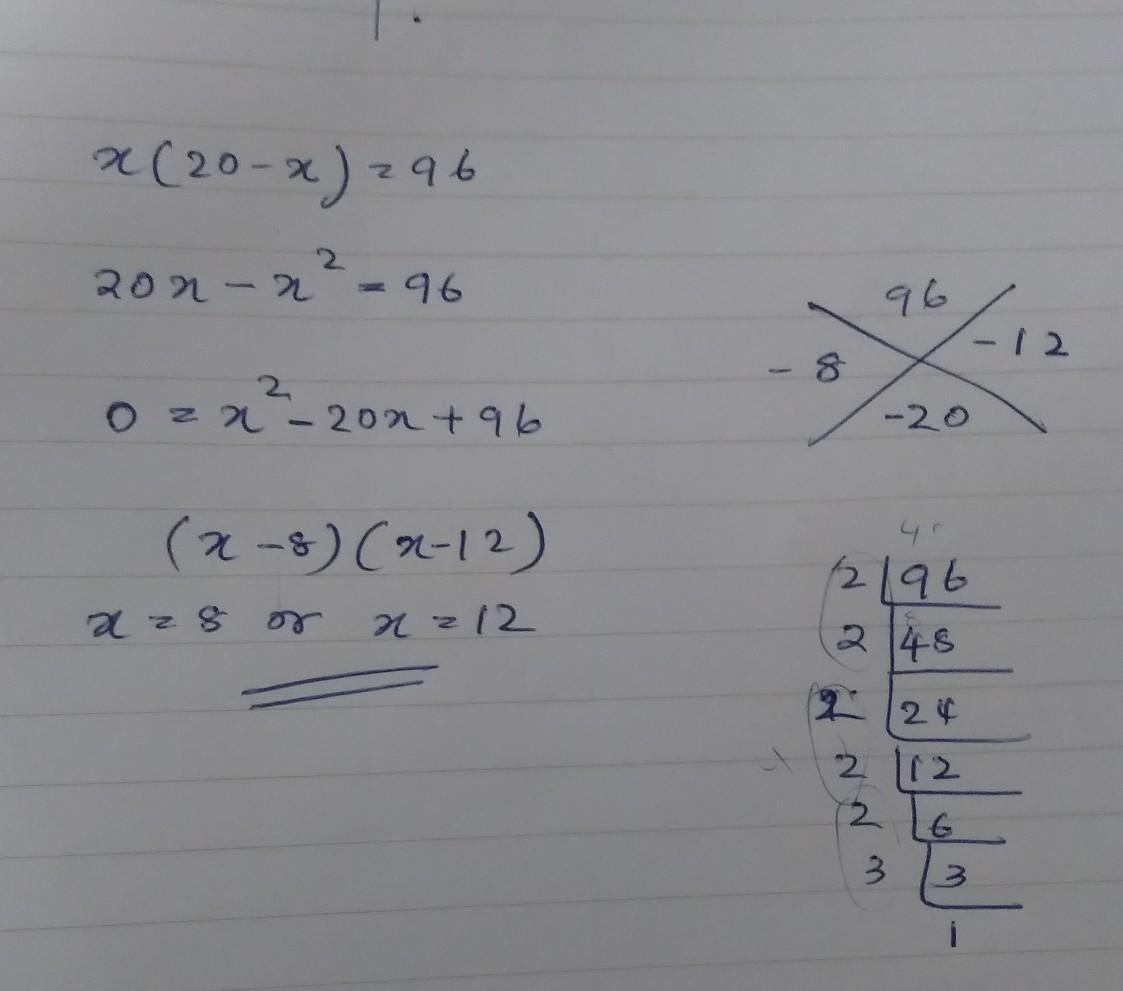 x(20-x)=96
20x-x²=96
0=x²-20x+96
(x-8)(x-12)
x=8 or x=12
96
-8 -12
-20
2 96
2 48
2 24
2 12
2 6
3 3
1